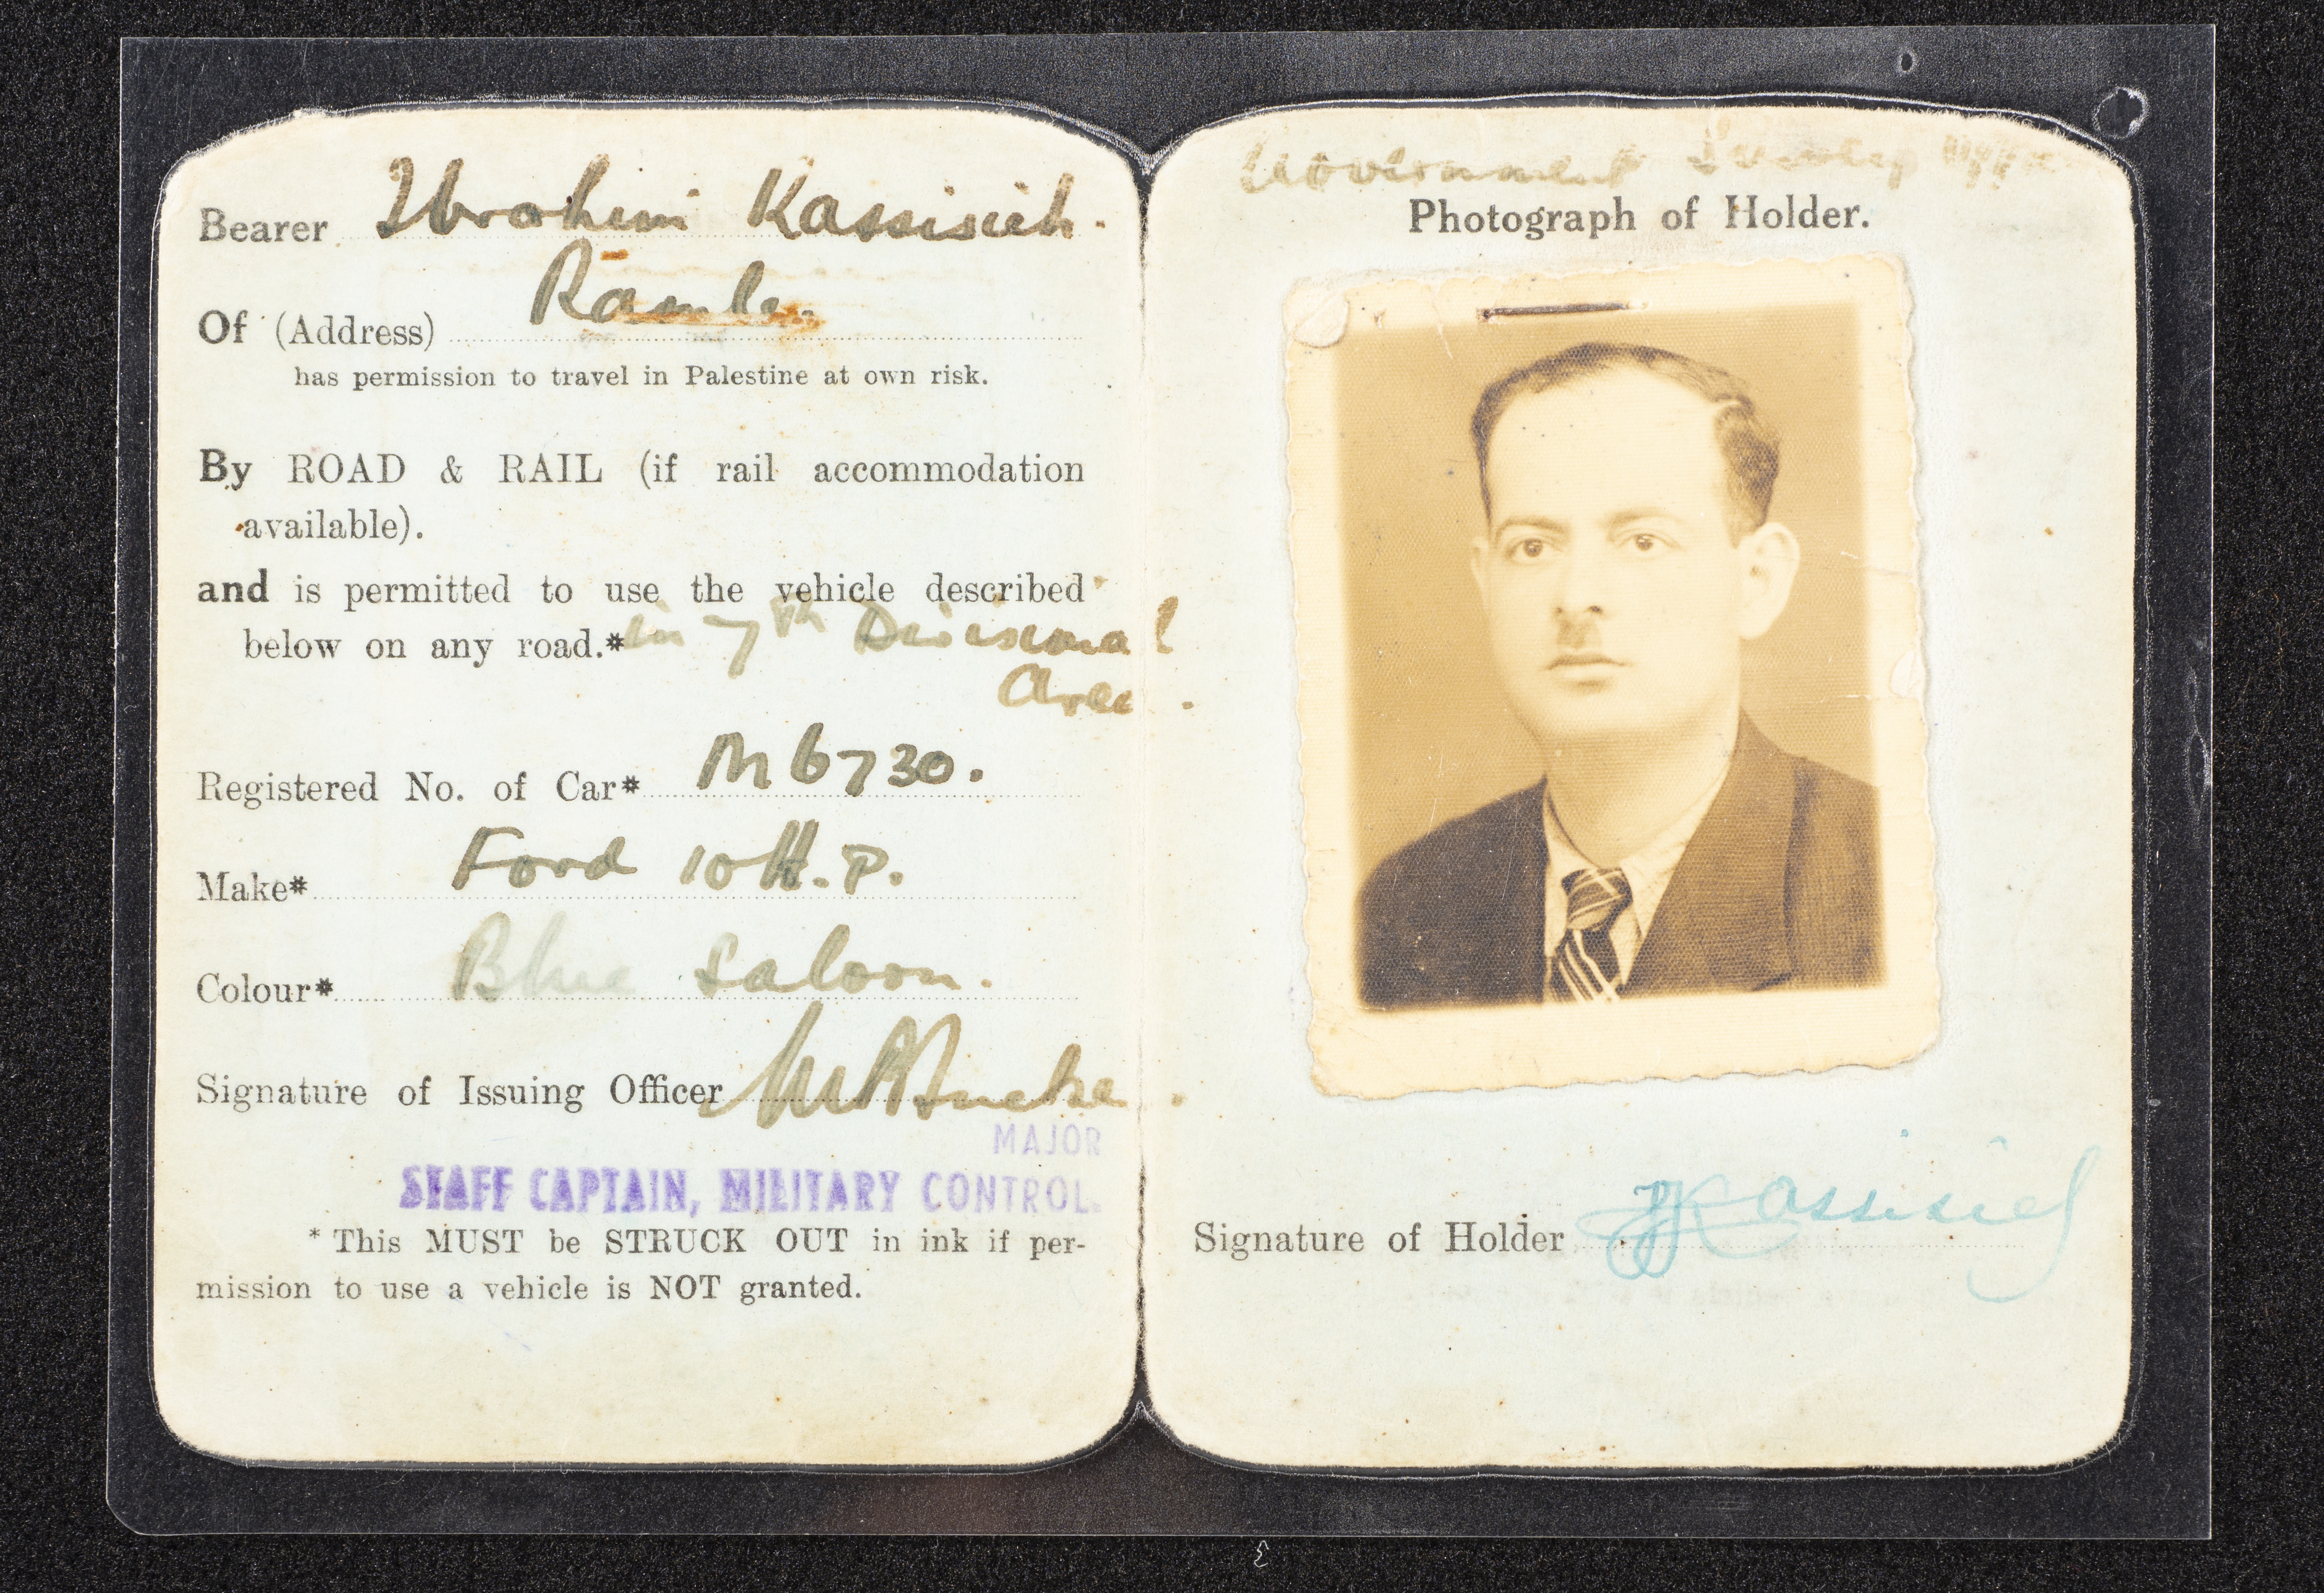 Bearer Ibrahim Kassisieh.
Of (Address) Ramle.
has permission to travel in Palestine at own risk.
By ROAD & RAIL (if rail accommodation
available).
and is permitted to use the vehicle described
below on any road.* in 7th Divisional
Area.
Registered No. of Car* M6730.
Make* Ford 10 H.P.
Colour* Blue Saloon.
Signature of Issuing Officer
MAJOR
STAFF CAPTAIN, MILITARY CONTROL.
* This MUST be STRUCK OUT in ink if per-
mission to use a vehicle is NOT granted.
Government
Photograph of Holder.
Signature of Holder Kassisieh